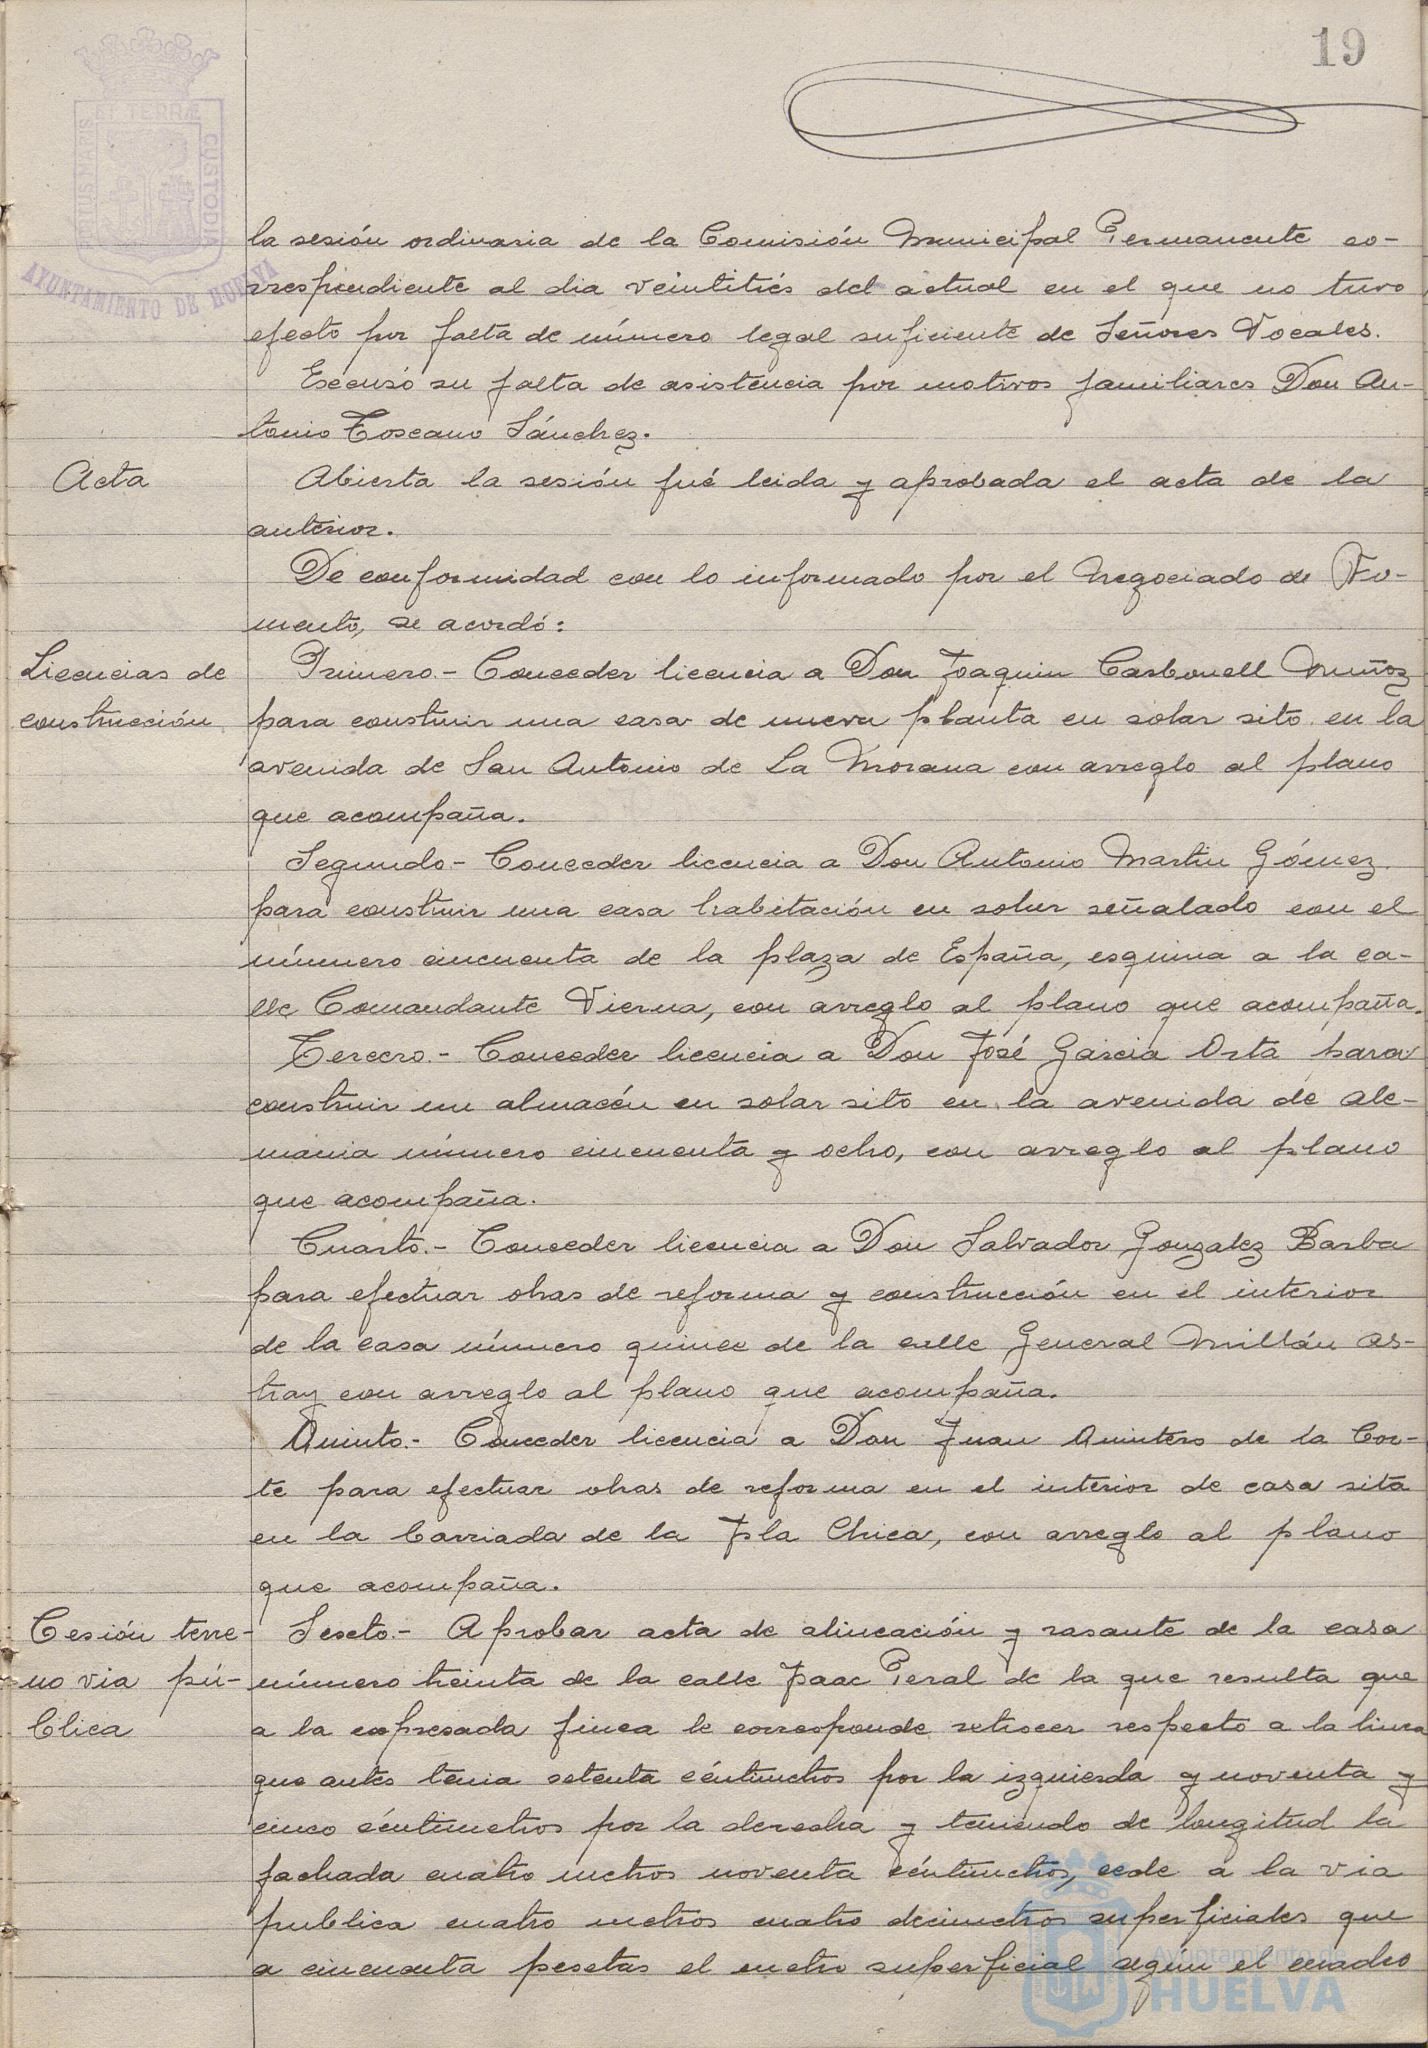 19
PORTUS MARIS
ET TERRÆ
CUSTODIA
AYUNTAMIENTO DE HUELVA
la sesión ordinaria de la Comisión Municipal Permanente co-
rrespiendiente al dia veintitrés del actual en el que no tuvo
efecto por falta de número legal suficiente de Señores Vocales.
Escusó su falta de asistencia por motivos familiares Don An-
tonio Toscano Sánchez.
Acta
Abierta la sesión fué leida y aprobada el acta de la
anterior.
De conformidad con lo informado por el Negociado de Fo-
mento, se acordó:
Licencias de
construcción
Primero.- Conceder licencia a Don Joaquin Carbonell Muñoz
para construir una casa de nueva planta en solar sito en la
avenida de San Antonio de La Morana con arreglo al plano
que acompaña.
Segundo- Conceder licencia a Don Antonio Martin Gómez
para construir una casa habitación en solar señalado con el
número cincuenta de la plaza de España, esquina a la ca-
lle Comandante Vierna, con arreglo al plano que acompaña.
Tercero.- Conceder licencia a Don José Garcia Orta para
construir un almacén en solar sito en la avenida de Ale-
mania número cincuenta y ocho, con arreglo al plano
que acompaña.
Cuarto.- Conceder licencia a Don Salvador Gonzalez Barba
para efectuar obras de reforma y construcción en el interior
de la casa número quince de la calle General Millán As-
tray con arreglo al plano que acompaña.
Quinto.- Conceder licencia a Don Juan Quintero de la Cor-
te para efectuar obras de reforma en el interior de casa sita
en la barriada de la Isla Chica, con arreglo al plano
que acompaña.
Cesión terre-
no via pú-
blica
Sexto.- Aprobar acta de alineación y rasante de la casa
número treinta de la calle Isaac Peral de la que resulta que
a la expresada finca le corresponde retrocer respecto a la linea
que antes tenia setenta céntimetros por la izquierda y noventa y
cinco céntimetros por la derecha y teniendo de longitud la
fachada cuatro metros noventa céntimetros, cede a la via
publica cuatro metros cuatro decimetros superficiales que
a cincuenta pesetas el metro superficial segun el cuadro
Ayuntamiento de
HUELVA